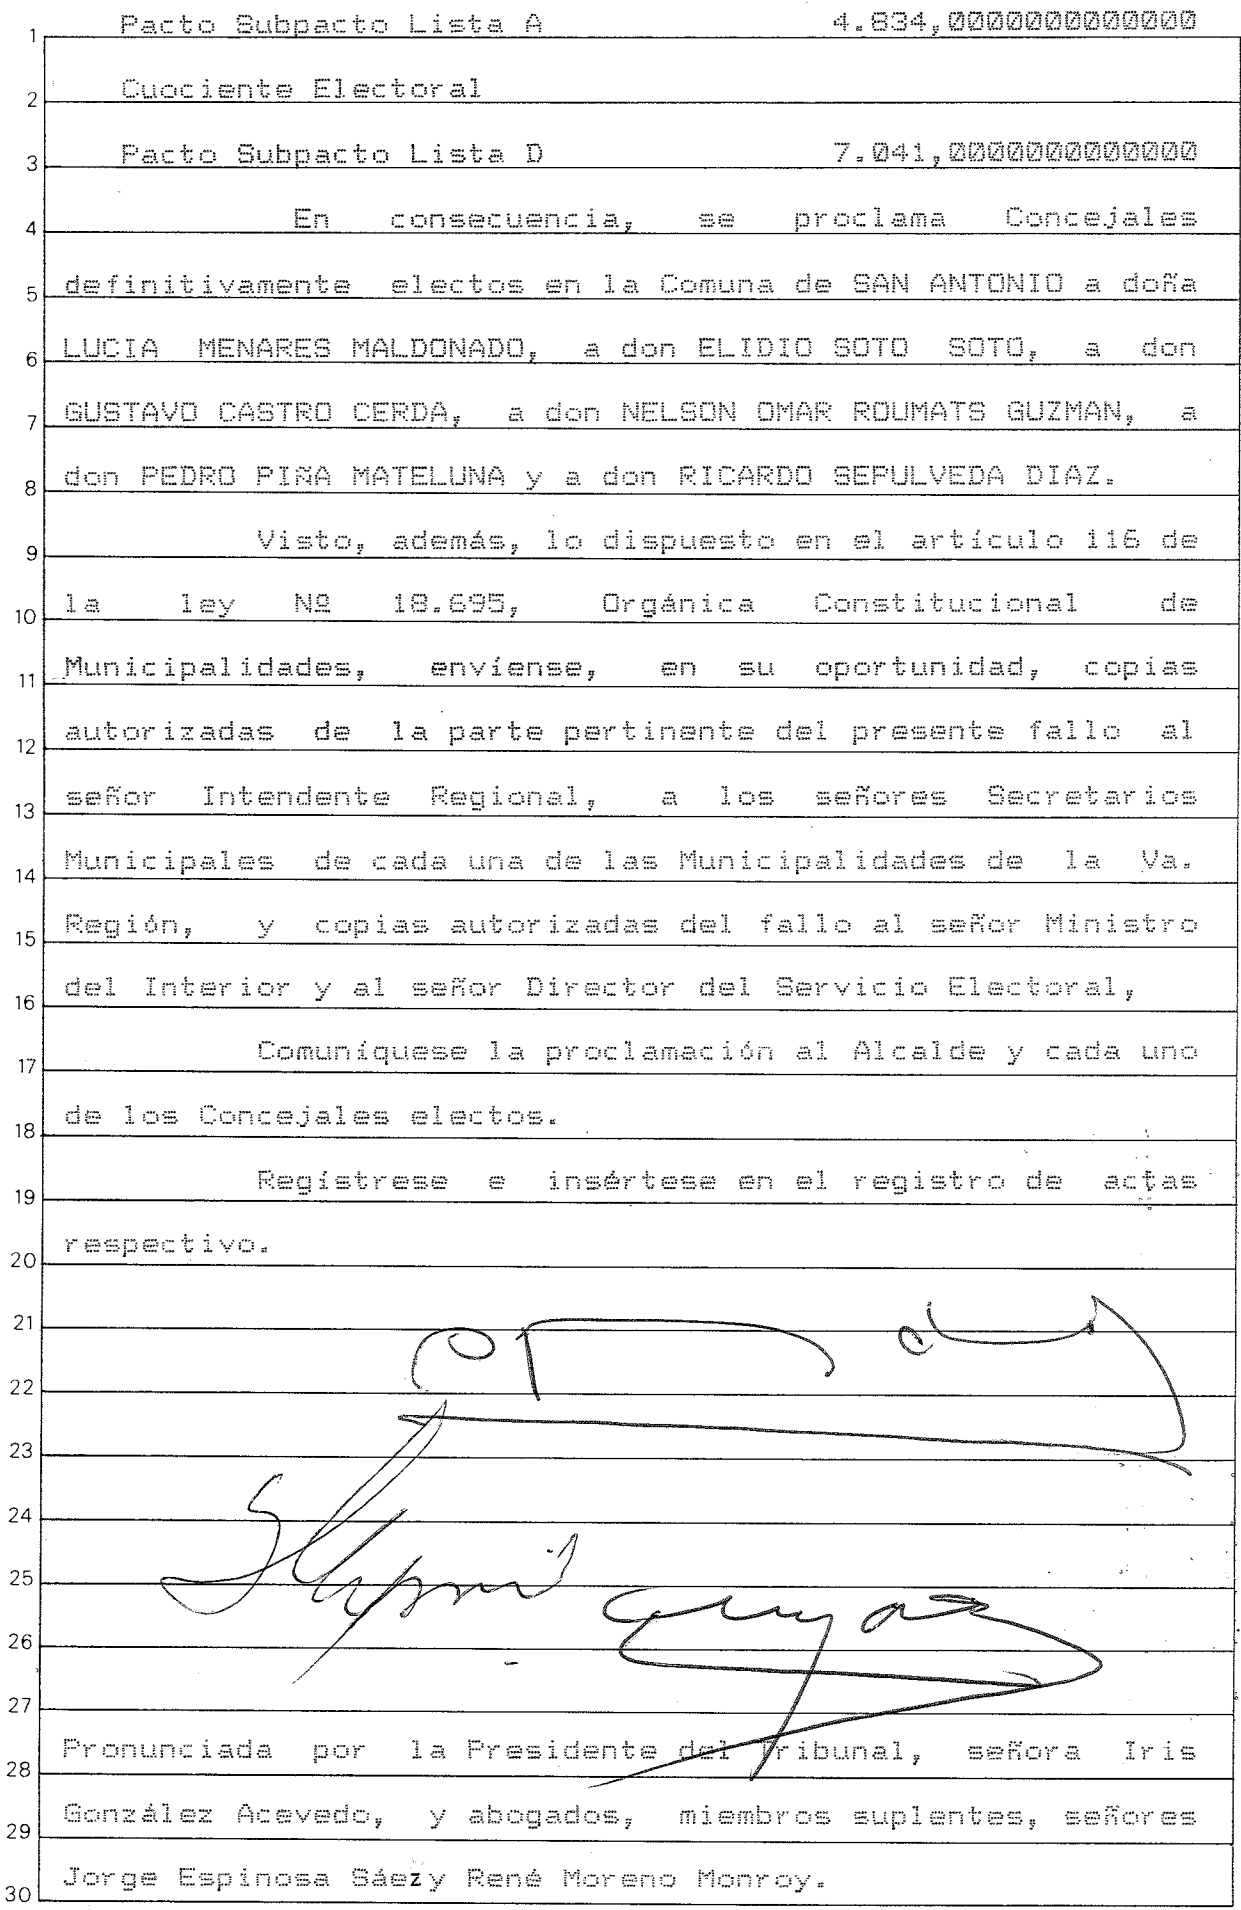 1 Pacto Subpacto Lista A 4.834,0000000000000
2 Cuociente Electoral
3 Pacto Subpacto Lista D 7.041,0000000000000
4 En consecuencia, se proclama Concejales
5 definitivamente electos en la Comuna de SAN ANTONIO a doña
6 LUCIA MENARES MALDONADO, a don ELIDIO SOTO SOTO, a don
7 GUSTAVO CASTRO CERDA, a don NELSON OMAR ROUMATS GUZMAN, a
8 don PEDRO PIÑA MATELUNA y a don RICARDO SEPULVEDA DIAZ.
9 Visto, además, lo dispuesto en el artículo 116 de
10 la ley Nº 18.695, Orgánica Constitucional de
11 Municipalidades, envíense, en su oportunidad, copias
12 autorizadas de la parte pertinente del presente fallo al
13 señor Intendente Regional, a los señores Secretarios
14 Municipales de cada una de las Municipalidades de la Va.
15 Región, y copias autorizadas del fallo al señor Ministro
16 del Interior y al señor Director del Servicio Electoral,
17 Comuníquese la proclamación al Alcalde y cada uno
18 de los Concejales electos.
19 Regístrese e insértese en el registro de actas
20 respectivo.
21
22
23
24
25
26
27
28 Pronunciada por la Presidente del Tribunal, señora Iris
29 González Acevedo, y abogados, miembros suplentes, señores
30 Jorge Espinosa Sáez y René Moreno Monroy.